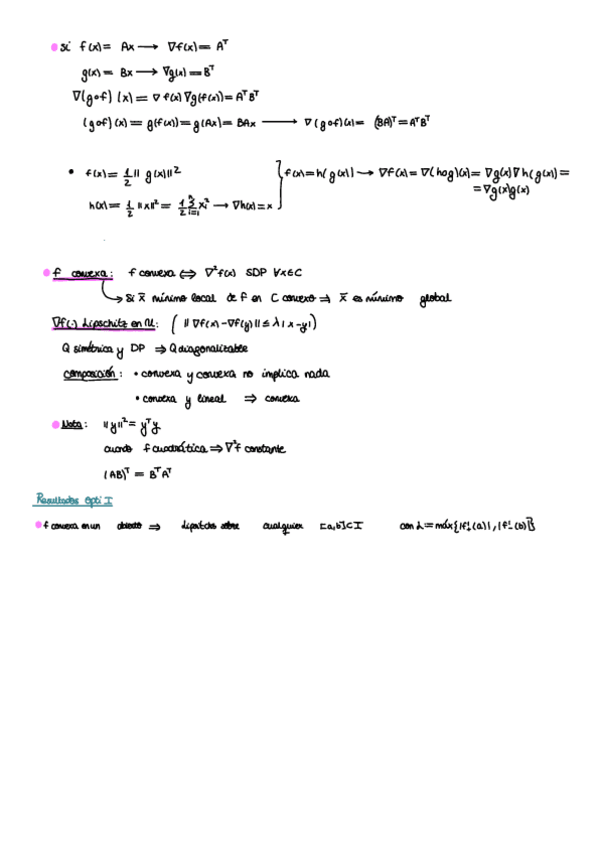 • si f(x) = Ax ⟶ ∇f(x) = Aᵀ
g(x) = Bx ⟶ ∇g(x) = Bᵀ
∇(g∘f)(x) = ∇f(x) ∇g(f(x)) = AᵀBᵀ
(g∘f)(x) = g(f(x)) = g(Ax) = BAx ⟶ ∇(g∘f)(x) = (BA)ᵀ = AᵀBᵀ
• f(x) = 1/2 ‖g(x)‖²
h(x) = 1/2 ‖x‖² = 1/2 Σᵢ₌₁ xᵢ² → ∇h(x) = x
} f(x) = h(g(x)) → ∇f(x) = ∇(h∘g)(x) = ∇g(x) ∇h(g(x)) =
= ∇g(x)g(x)
• f convexa: f convexa ⟺ ∇²f(x) SDP ∀x∈C
↳ Si x̄ mínimo local de f en C convexo ⇒ x̄ es mínimo global
∇f(·) Lipschitz en U: (‖∇f(x) - ∇f(y)‖ ≤ λ|x-y|)
Q simétrica y DP ⇒ Q diagonalizable
composición: • convexa y convexa no implica nada
• convexa y lineal ⇒ convexa
• Nota: ‖y‖² = yᵀy
cuando f cuadrática ⇒ ∇²f constante
(AB)ᵀ = BᵀAᵀ
Resultados Opti I
• f convexa en un abierto ⇒ lipschitz sobre cualquier [a,b]⊂I con λ = máx{|f'₊(a)|, |f'₋(b)|}